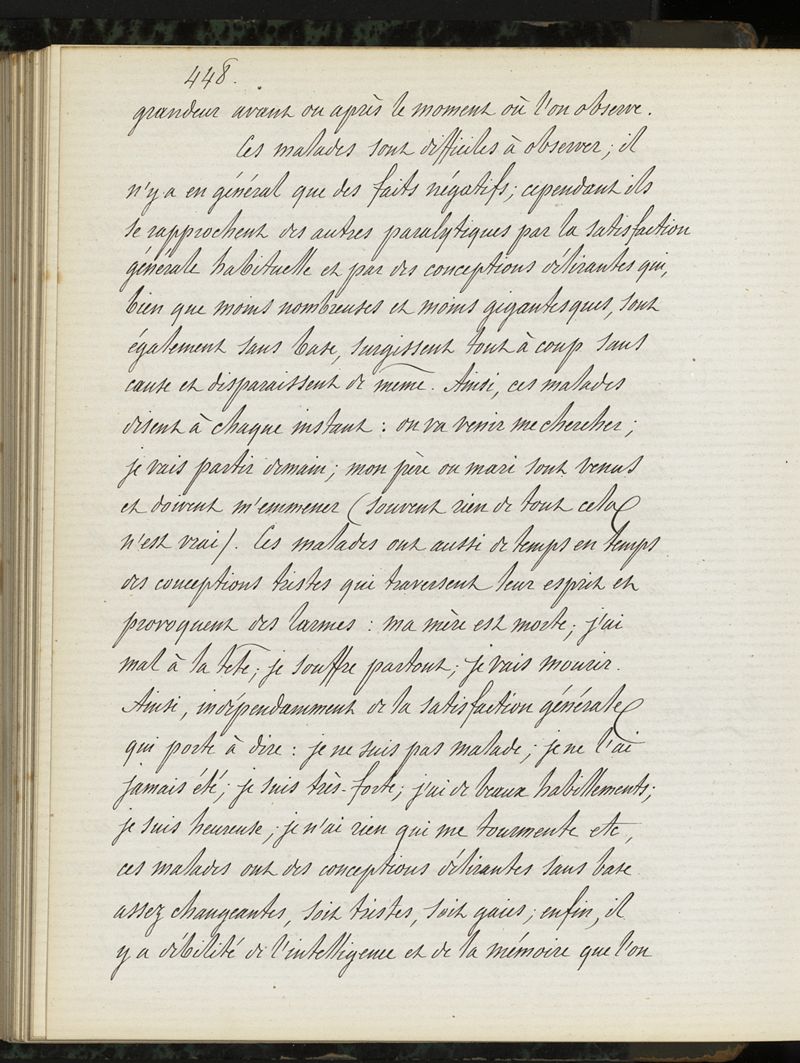 448.
grandeur avant ou après le moment où l'on observe.
Ces malades sont difficiles à observer; il
n'y a en général que des faits négatifs; cependant ils
se rapprochent des autres paralytiques par la satisfaction
générale habituelle et par des conceptions délirantes qui,
bien que moins nombreuses et moins gigantesques, sont
également sans base, surgissent tout à coup sans
cause et disparaissent de même. Ainsi, ces malades
disent à chaque instant : on va venir me chercher;
je vais partir demain; mon père ou mari sont venus
et doivent m'emmener (souvent rien de tout cela
n'est vrai). Ces malades ont aussi de temps en temps
des conceptions tristes qui traversent leur esprit et
provoquent des larmes : ma mère est morte; j'ai
mal à la tête; je souffre partout; je vais mourir.
Ainsi, indépendamment de la satisfaction générale
qui porte à dire : je ne suis pas malade; je ne l'ai
jamais été; je suis très-forte; j'ai de beaux habillements;
je suis heureuse; je n'ai rien qui me tourmente etc,
ces malades ont des conceptions délirantes sans base
assez changeantes, soit tristes, soit gaies; enfin, il
y a débilité de l'intelligence et de la mémoire que l'on